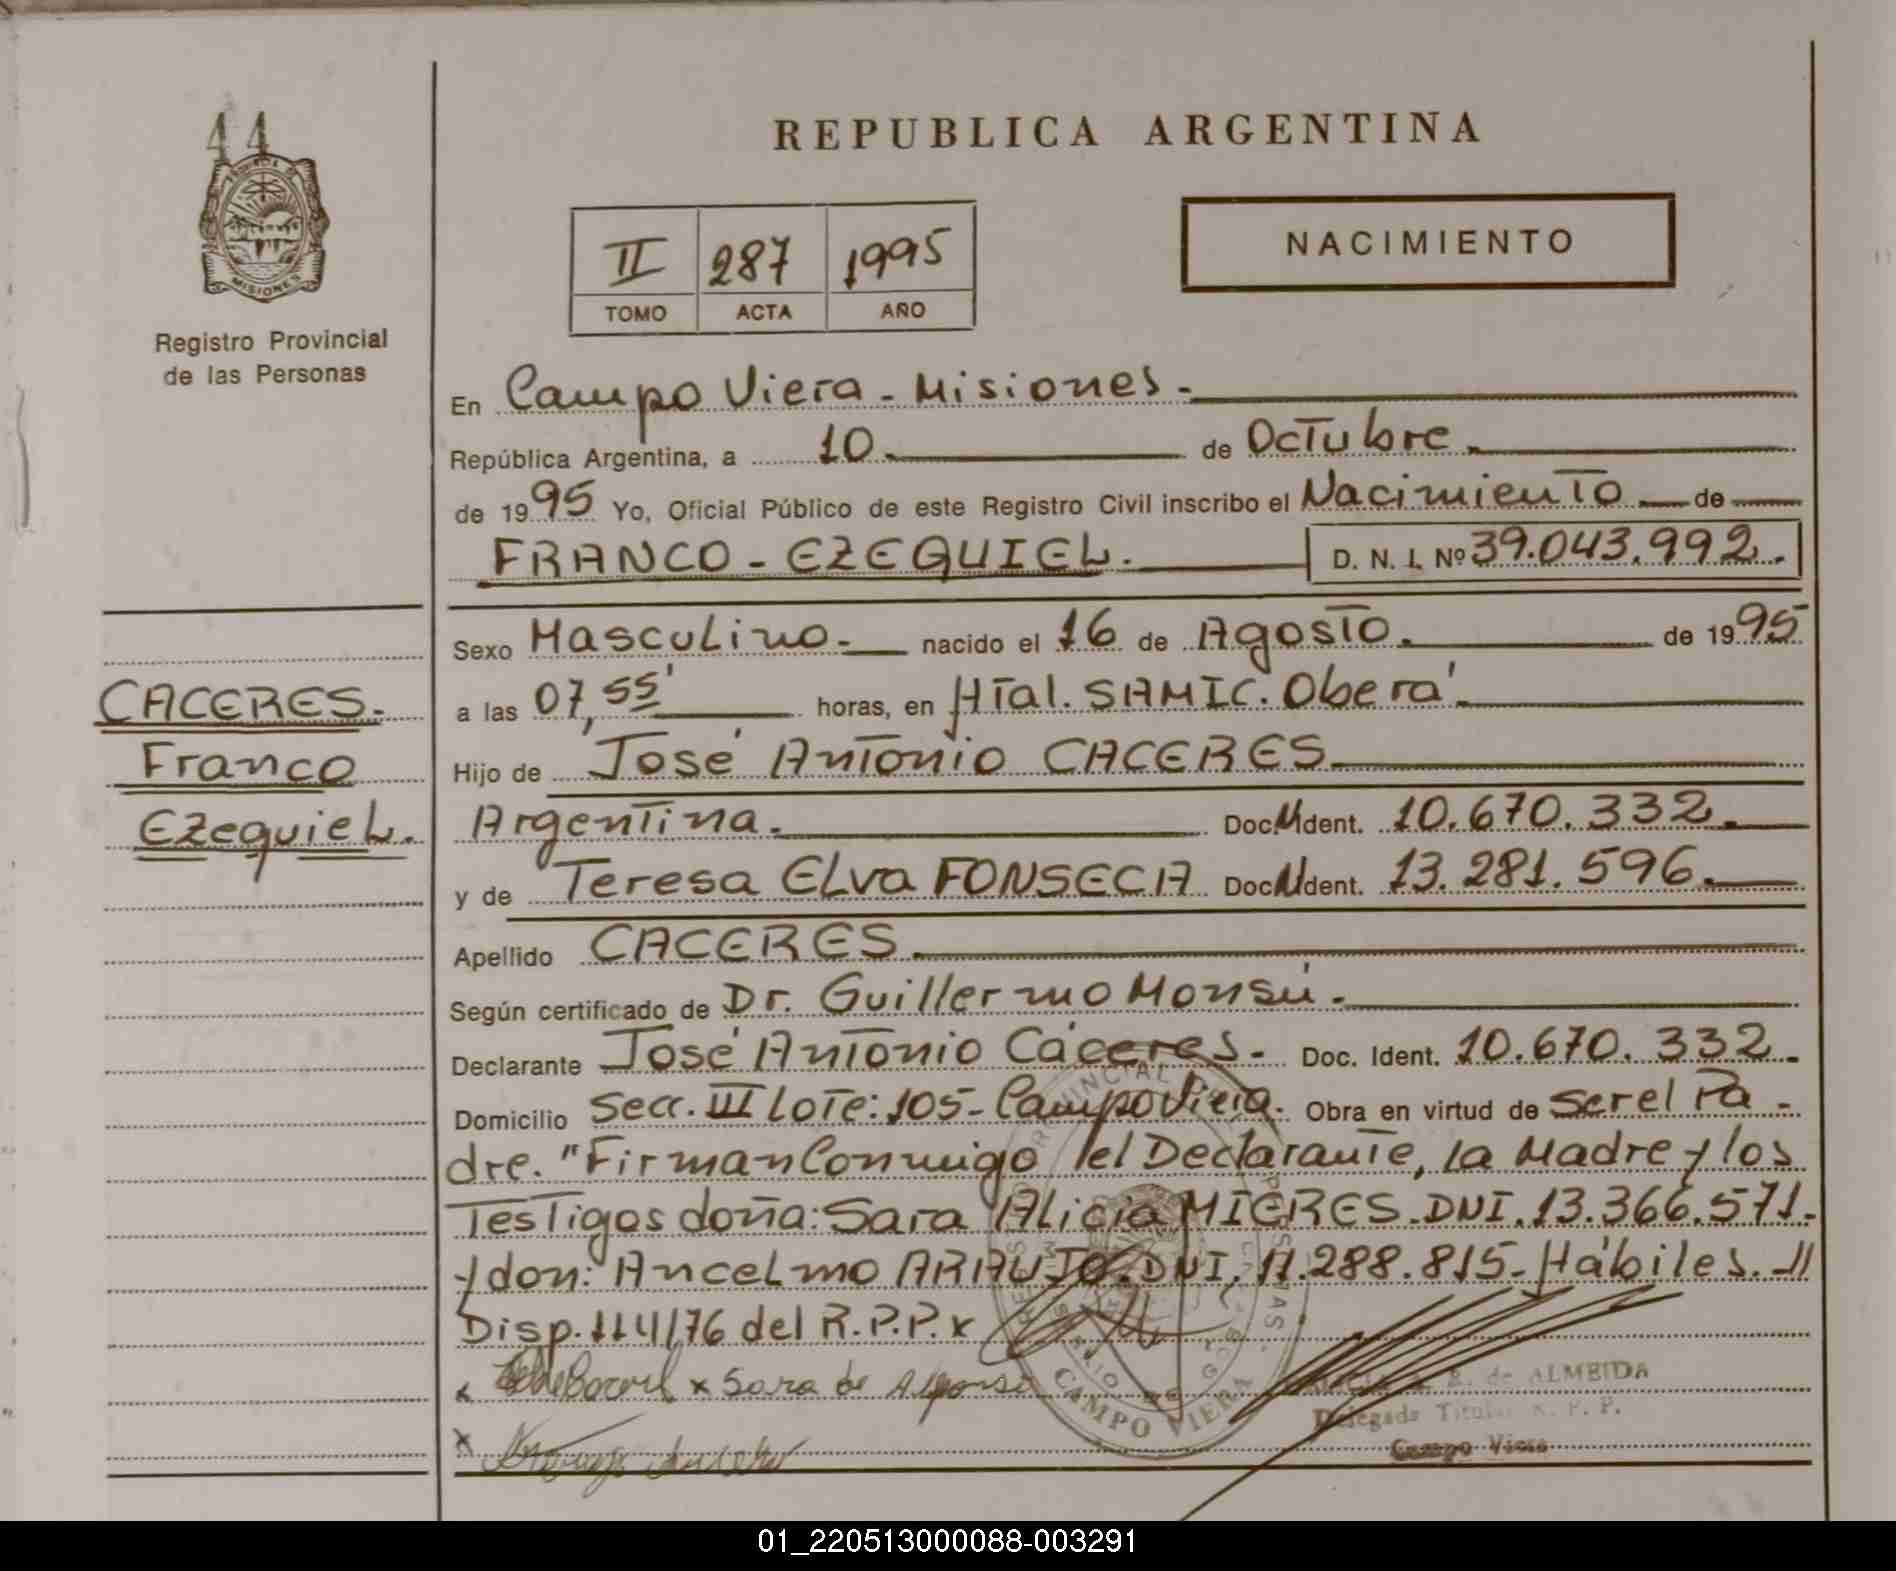 44
PROVINCIA DE
MISIONES
Registro Provincial
de las Personas
CACERES.
Franco
Ezequiel.
REPUBLICA ARGENTINA
II 287 1995
TOMO ACTA AÑO
NACIMIENTO
En Campo Viera - Misiones -
República Argentina, a 10. de Octubre.
de 1995 Yo, Oficial Público de este Registro Civil inscribo el Nacimiento de
FRANCO - EZEQUIEL. D. N. I. Nº 39.043.992.
Sexo Masculino. nacido el 16 de Agosto. de 1995
a las 07,55' horas, en Htal. SAMIC. Oberá
Hijo de José Antonio CACERES
Argentina. Doc. Ident. 10.670.332.
y de Teresa Elva FONSECA Doc. Ident. 13.281.596.
Apellido CACERES
Según certificado de Dr. Guillermo Monsú.
Declarante José Antonio Cáceres. Doc. Ident. 10.670.332.
Domicilio Secc. III Lote: 105- Campo Viera. Obra en virtud de ser el Pa-
dre. "Firman Conmigo el Declarante, la Madre y los
Testigos doña: Sara Alicia MIERES. DNI. 13.366.571.
y don: Ancelmo ARAUJO. DNI. 11.288.815- Hábiles. "
Disp. 114/76 del R.P.P. x
x x Sara de
x
CAMPO VIERA
B. de ALMEIDA
Delegada Titular R. P. P.
Campo Viera
01_220513000088-003291